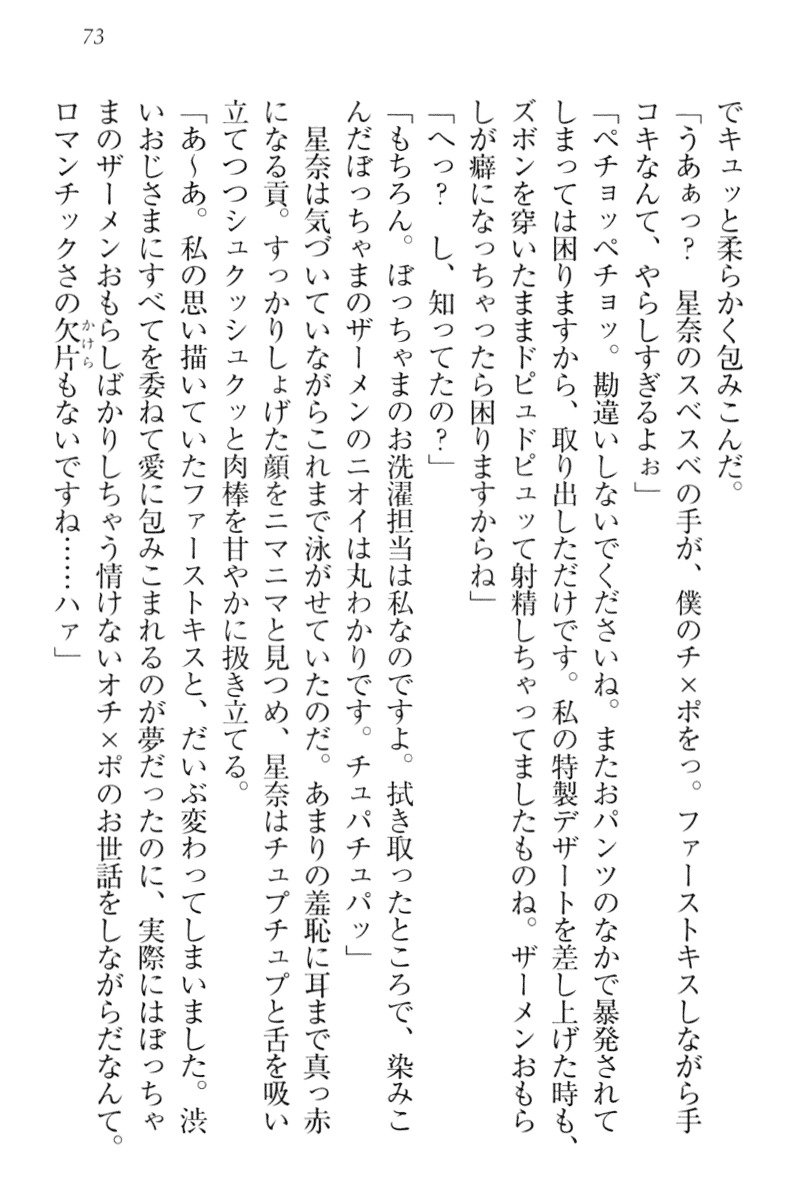 73
でキュッと柔らかく包みこんだ。
「うあぁっ?　星奈のスベスベの手が、僕のチ×ポをっ。ファーストキスしながら手
コキなんて、やらしすぎるよぉ」
「ペチョッペチョッ。勘違いしないでくださいね。またおパンツのなかで暴発されて
しまっては困りますから、取り出しただけです。私の特製デザートを差し上げた時も、
ズボンを穿いたままドピュドピュッて射精しちゃってましたものね。ザーメンおもら
しが癖になっちゃったら困りますからね」
「へっ?　し、知ってたの?」
「もちろん。ぼっちゃまのお洗濯担当は私なのですよ。拭き取ったところで、染みこ
んだぼっちゃまのザーメンのニオイは丸わかりです。チュパチュパッ」
　星奈は気づいていながらこれまで泳がせていたのだ。あまりの羞恥に耳まで真っ赤
になる貢。すっかりしょげた顔をニマニマと見つめ、星奈はチュプチュプと舌を吸い
立てつつシュクッシュクッと肉棒を甘やかに扱き立てる。
「あ～あ。私の思い描いていたファーストキスと、だいぶ変わってしまいました。渋
いおじさまにすべてを委ねて愛に包みこまれるのが夢だったのに、実際にはぼっちゃ
まのザーメンおもらしばかりしちゃう情けないオチ×ポのお世話をしながらだなんて。
ロマンチックさの欠片（かけら）もないですね……ハァ」